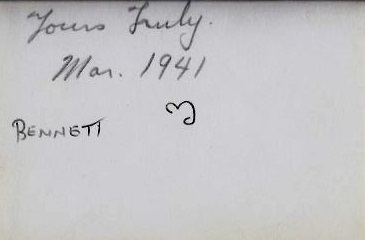 Yours Truly.
Mar. 1941
BENNETT